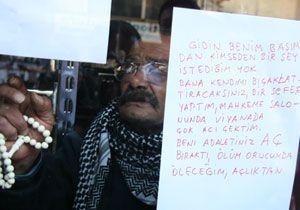 GİDİN BENİM BAŞIM
DAN KİMSEDEN BİR ŞEY
İSTEDİĞİM YOK.
BANA KENDİMİ BIÇAKLAT
TIRACAKSINIZ, BİR SEFER
YAPTIM, MAHKEME SALO-
NUNDA VİYANADA
ÇOK ACI ÇEKTİM.
BENİ ADALETİNİZ AÇ
BIRAKTI, ÖLÜM ORUCUNDA
ÖLECEĞİM, AÇLIKTAN